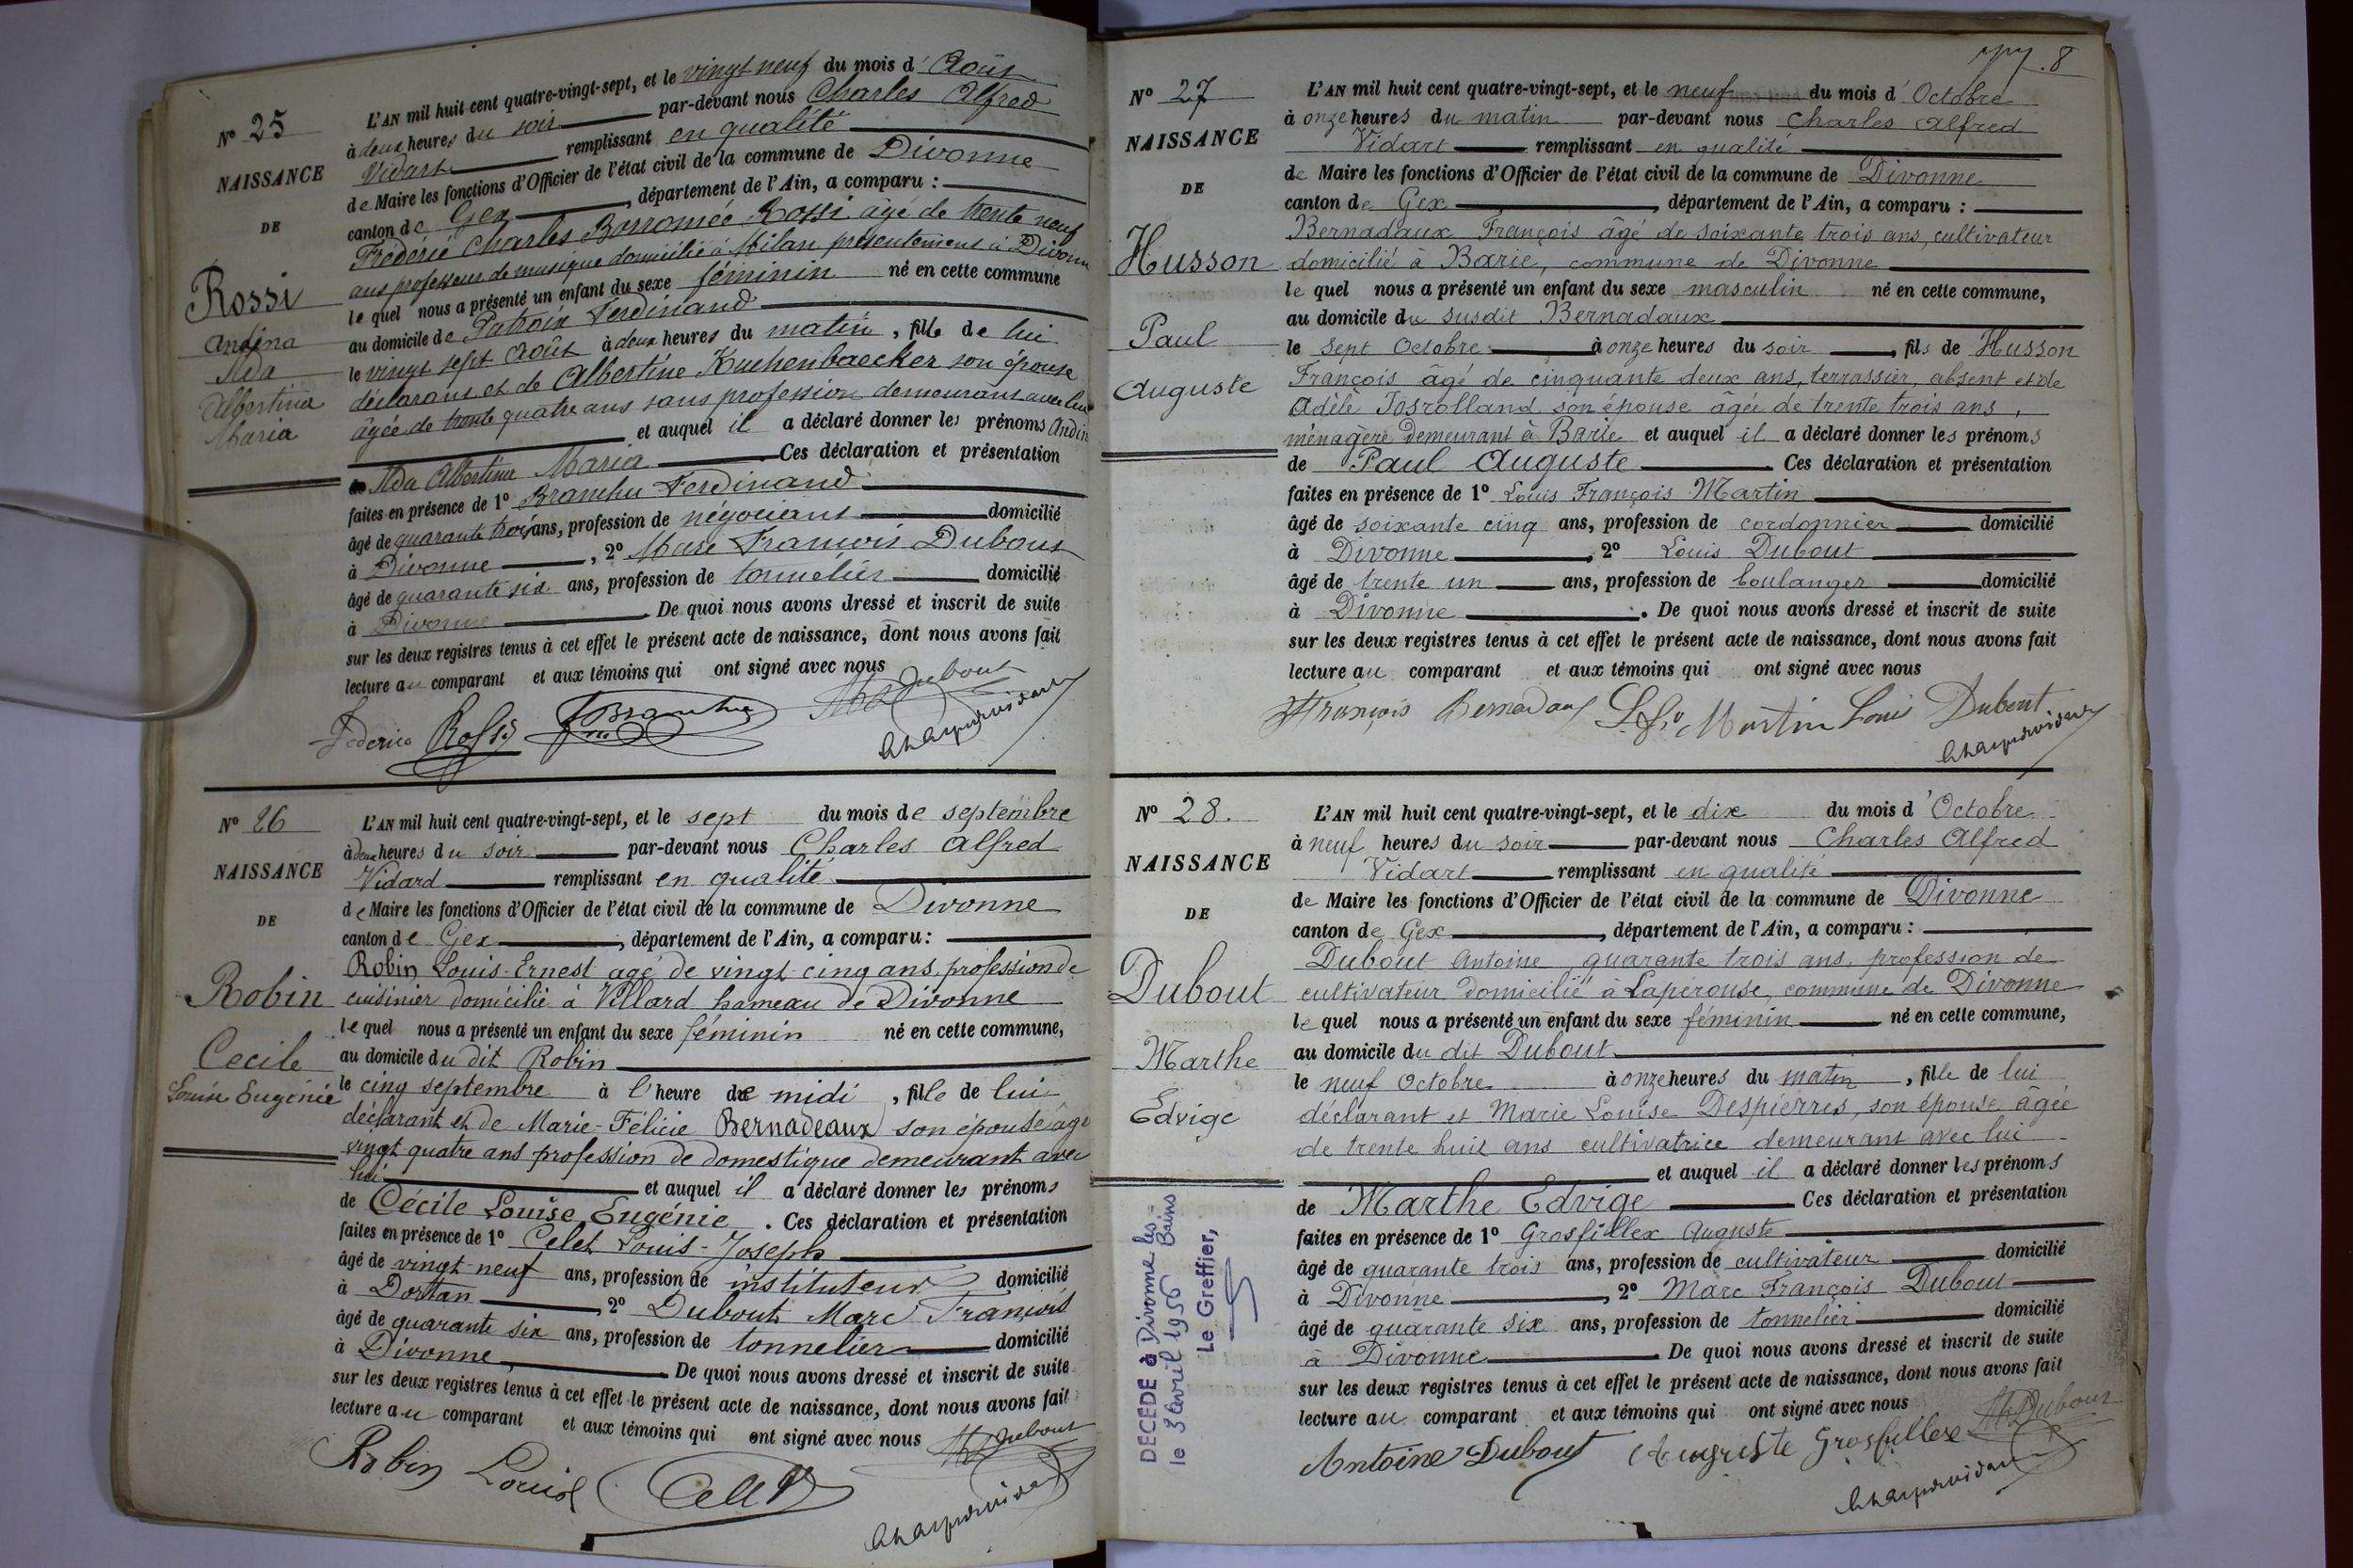 N° 25
NAISSANCE
DE
Rossi
Andina
Ada
Albertina
Maria
L'AN mil huit cent quatre-vingt-sept, et le vingt neuf du mois d'Août
à deux heures du soir par-devant nous Charles Alfred
Vidart remplissant en qualité
de Maire les fonctions d'Officier de l'état civil de la commune de Divonne
canton de Gex, département de l'Ain, a comparu :
Frédéric Charles Borromée Rossi âgé de trente neuf
ans professeur de musique domicilié à Milan présentement à Divonne
lequel nous a présenté un enfant du sexe féminin né en cette commune
au domicile de Ferdinand
le vingt sept Août à deux heures du matin, fille de lui
déclarant et de Albertine Kuchenbaecker son épouse
âgée de trente quatre ans sans profession demeurant avec lui
et auquel il a déclaré donner les prénoms Andin
Ada Albertina Maria Ces déclaration et présentation
faites en présence de 1° Branchu Ferdinand
âgé de quarante trois ans, profession de négociant domicilié
à Divonne, 2° Marc François Dubout
âgé de quarante six ans, profession de tonnelier domicilié
à Divonne De quoi nous avons dressé et inscrit de suite
sur les deux registres tenus à cet effet le présent acte de naissance, dont nous avons fait
lecture au comparant et aux témoins qui ont signé avec nous
Federico Rossi Branchu Dubout
N° 26
NAISSANCE
DE
Robin
Cecile
Louise Eugénie
L'AN mil huit cent quatre-vingt-sept, et le sept du mois de septembre
à deux heures du soir par-devant nous Charles Alfred
Vidard remplissant en qualité
de Maire les fonctions d'Officier de l'état civil de la commune de Divonne
canton de Gex, département de l'Ain, a comparu :
Robin Louis-Ernest agé de vingt cinq ans, profession de
cuisinier domicilié à Villard hameau de Divonne
lequel nous a présenté un enfant du sexe féminin né en cette commune,
au domicile du dit Robin
le cinq septembre à l'heure de midi, fille de lui
déclarant et de Marie-Félicie Bernadeaux son épouse âgé
vingt quatre ans profession de domestique demeurant avec
lui et auquel il a déclaré donner les prénoms
de Cécile Louise Eugénie. Ces déclaration et présentation
faites en présence de 1° Celet Louis-Joseph
âgé de vingt-neuf ans, profession de instituteur domicilié
à Dortan, 2° Dubout Marc François
âgé de quarante six ans, profession de tonnelier domicilié
à Divonne, De quoi nous avons dressé et inscrit de suite
sur les deux registres tenus à cet effet le présent acte de naissance, dont nous avons fait
lecture au comparant et aux témoins qui ont signé avec nous
Robin Louis Celet Dubout
8
N° 27
NAISSANCE
DE
Husson
Paul
Auguste
L'AN mil huit cent quatre-vingt-sept, et le neuf du mois d'Octobre
à onze heures du matin par-devant nous Charles Alfred
Vidart remplissant en qualité
de Maire les fonctions d'Officier de l'état civil de la commune de Divonne
canton de Gex, département de l'Ain, a comparu :
Bernadaux François âgé de soixante trois ans, cultivateur
domicilié à Barie, commune de Divonne
lequel nous a présenté un enfant du sexe masculin né en cette commune,
au domicile du susdit Bernadaux
le sept Octobre à onze heures du soir, fils de Husson
François âgé de cinquante deux ans, terrassier, absent et de
Adèle Josrolland son épouse âgée de trente trois ans,
ménagère demeurant à Barie et auquel il a déclaré donner les prénoms
de Paul Auguste Ces déclaration et présentation
faites en présence de 1° Louis François Martin
âgé de soixante cinq ans, profession de cordonnier domicilié
à Divonne, 2° Louis Dubout
âgé de trente un ans, profession de boulanger domicilié
à Divonne. De quoi nous avons dressé et inscrit de suite
sur les deux registres tenus à cet effet le présent acte de naissance, dont nous avons fait
lecture au comparant et aux témoins qui ont signé avec nous
François Bernadaux Ls Fs Martin Louis Dubout
N° 28.
NAISSANCE
DE
Dubout
Marthe
Edvige
DÉCÉDÉ à Divonne les-Bains
le 3 avril 1956
Le Greffier,
L'AN mil huit cent quatre-vingt-sept, et le dix du mois d'Octobre
à neuf heures du soir par-devant nous Charles Alfred
Vidart remplissant en qualité
de Maire les fonctions d'Officier de l'état civil de la commune de Divonne
canton de Gex, département de l'Ain, a comparu :
Dubout Antoine, quarante trois ans, profession de
cultivateur domicilié à Laperouse, commune de Divonne
lequel nous a présenté un enfant du sexe féminin né en cette commune,
au domicile du dit Dubout
le neuf Octobre à onze heures du matin, fille de lui
déclarant et Marie Louise Despierres, son épouse âgée
de trente huit ans cultivatrice demeurant avec lui
et auquel il a déclaré donner les prénoms
de Marthe Edvige Ces déclaration et présentation
faites en présence de 1° Grosfillex Auguste
âgé de quarante trois ans, profession de cultivateur domicilié
à Divonne, 2° Marc François Dubout
âgé de quarante six ans, profession de tonnelier domicilié
à Divonne De quoi nous avons dressé et inscrit de suite
sur les deux registres tenus à cet effet le présent acte de naissance, dont nous avons fait
lecture au comparant et aux témoins qui ont signé avec nous
Antoine Dubout Auguste Grosfillex Dubout